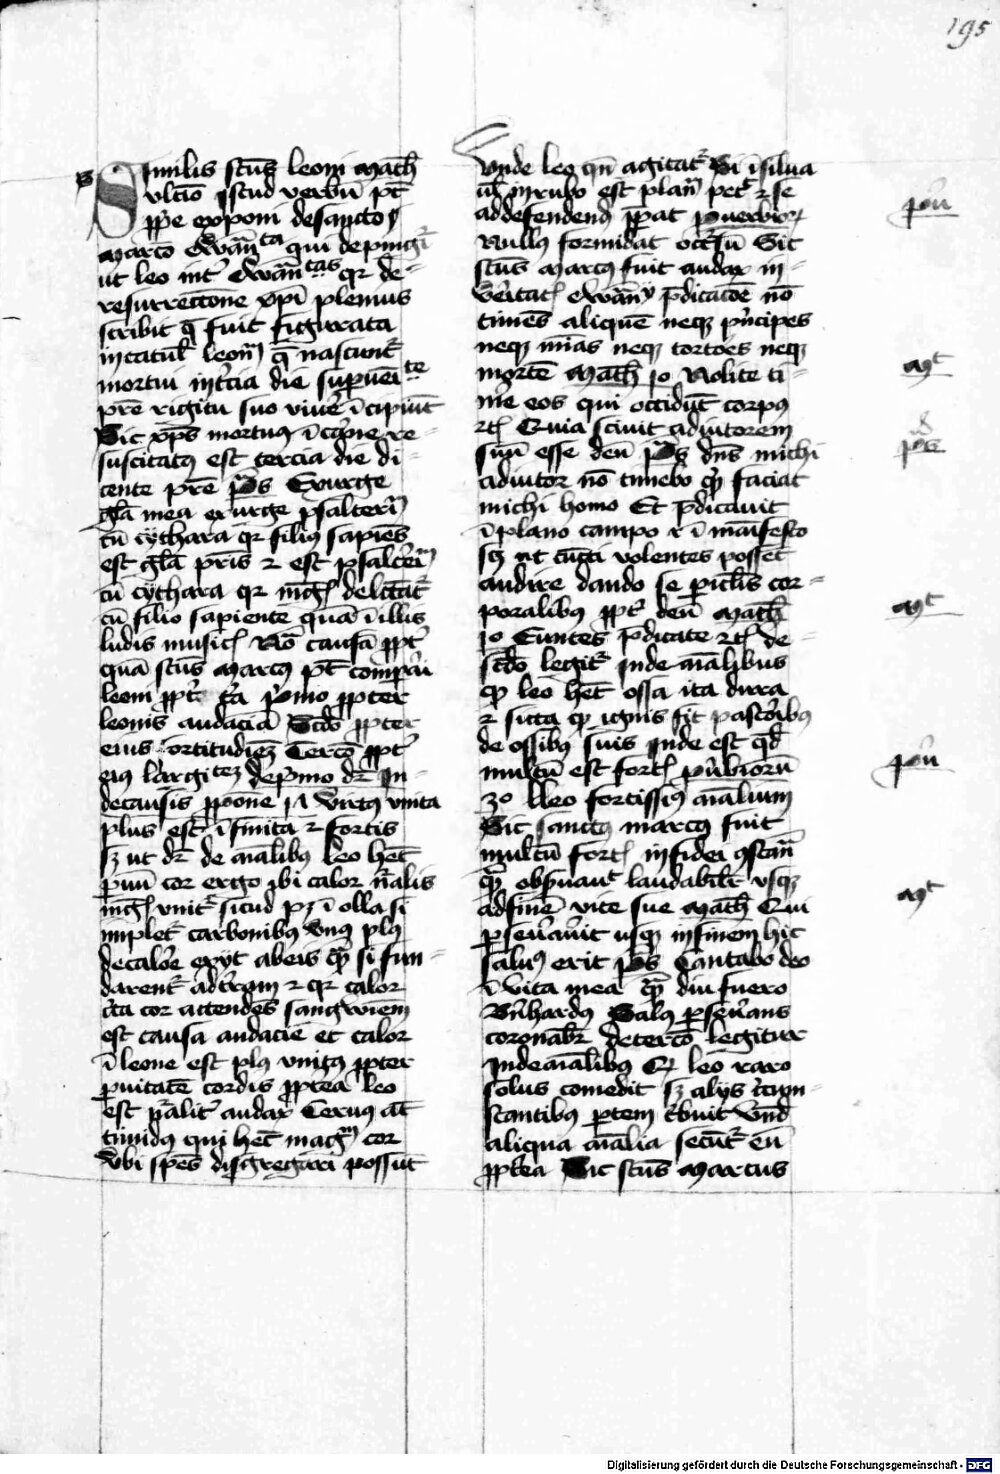 195
Similis factus leoni Math
pt
ppe exponi de sancto
Marco ewan^ta qui depingit
ut leo int ewan^tas qr de-
resurrectone xpi plenius
scribit q fuit figurata
in catul leon q nascunt
mortui in tercia die supueni^te
pre rigitu suo viue incipiut
Sic xps mortuus re-
suscitatus est tercia die di-
cente pre ps Exurge
gla mea exurge psalterm
cu cythara qr filius sapiens
est gla pris et est psalterm
cu cythara qr mgis delectat
cu filio sapiente qua i illis
ludis music No causam ppt
qua scus Marcus pt compari
leoni ppt tria primo ppter
leonis audacia Scdo ppter
eius fortitudiez Tercio ppt
eius largitez de pmo dr in
de causis virtus unita
plus est infinita et fortis
sz ut dr de aialibus leo het
puu cor ergo ibi calor nralis
mgis unit sicud pz i olla si
implet carbonibus unus plus
de calore exyt ab eis qm si fun-
darent ad terram et qr calor
cor attendens sangwinem
est causa audacie et calor
i leone est plus unitus ppter
puitate cordis pptea leo
est audax Ceruus at
timidus qui het magm cor
ubi spes disgregari possut
Unde leo qn agitat Si i silua
ul in rubo est
ad defendend pat puerbior
Nullus formidat occursu Sic
scus Marcus fuit audax in-
veritat ewany pdicatoe no
times aliquem neqz principes
neqz minas neqz tortores neqz
morte Math 10 Nolite ti-
mere eos qui occidut corpus
etc Quia sciuit adiutorem
suu esse deu ps dns michi
adiutor no timebo quid faciat
michi homo Et pdicauit
i plano campo et i manifesto
sz ut cuncti volentes posset
audire dando se piculis cor-
poralibus ppt deu Math
10 Euntes pdicate etc de-
scdo legit inde aialibus
qz leo het ossa ita dura
et sicca qz ignis fit pastoribus
de ossibus suis inde est qd
multu est fort puerbioru
30 Leo fortissius aialium
Sic sanctus marcus fuit
multu fort in fidei constan
qm obseruauit laudabilit usqz
ad fine vite sue Math Qui
perseuerauerit usqz in finem hic
saluus erit ps Cantabo deo
i vita mea qm diu fuero
Bernhardus Solus perseuerans
coronabr de tercio legitur
in de aialibus Qr leo raro
solus comedit sz alys circum-
stantibus partem tribuit und
aliqua aialia secunt eu
pptea Sic scus Marcus
pu
mt
ps
mt
pu
mt
Digitalisierung gefördert durch die Deutsche Forschungsgemeinschaft - DFG